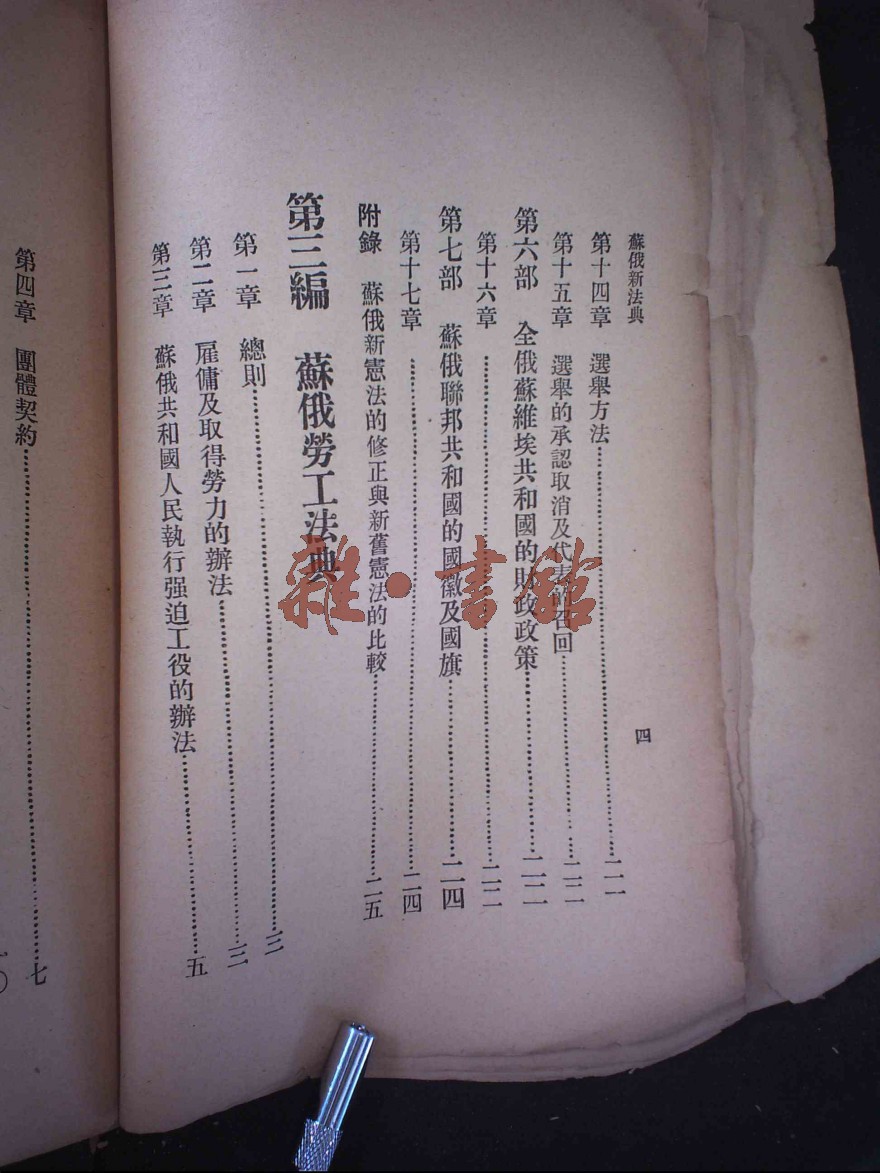 蘇俄新法典
四
第十四章 選舉方法……二一
第十五章 選舉的承認取消及代表的召回……二二
第六部 全俄蘇維埃共和國的財政政策……二二
第十六章……二二
第七部 蘇俄聯邦共和國的國徽及國旗……二四
第十七章……二四
附錄 蘇俄新憲法的修正與新舊憲法的比較……二五
第三編 蘇俄勞工法典
第一章 總則……三
第二章 雇傭及取得勞力的辦法……三
第三章 蘇俄共和國人民執行强迫工役的辦法……五
第四章 團體契約……七
雜·書館